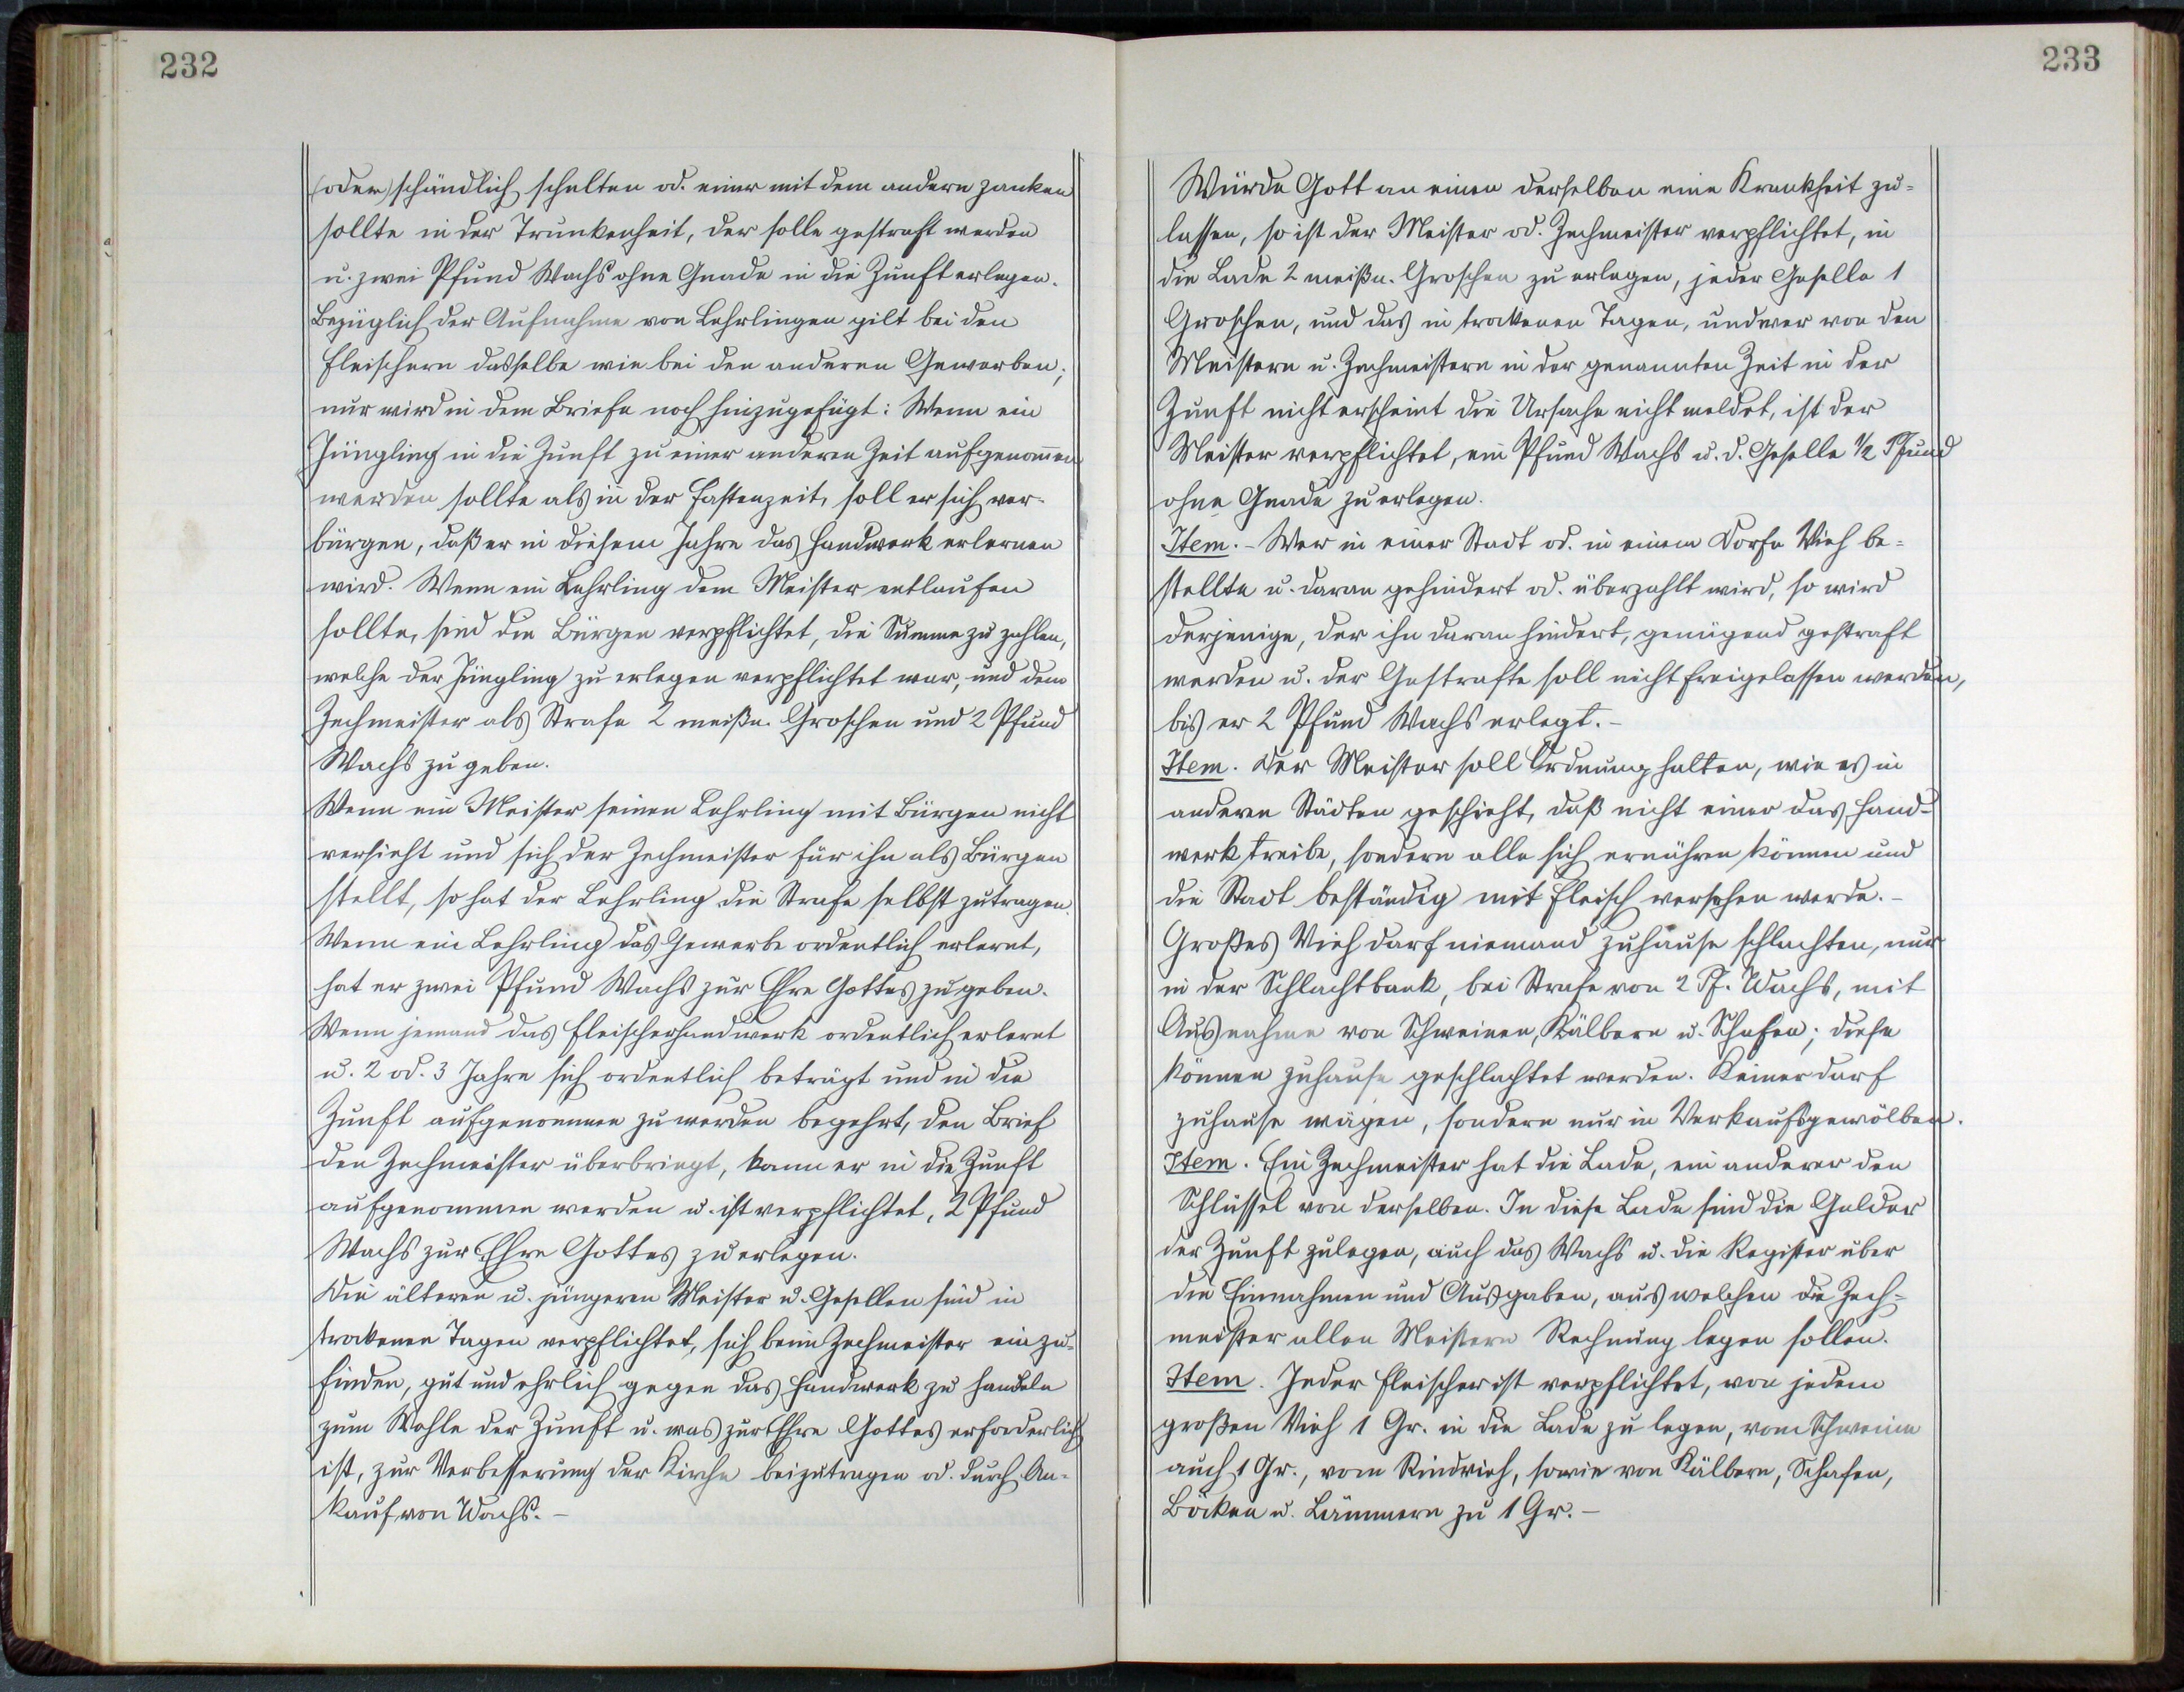 232
(oder) schändlich schelten od. einer mit dem andern zanken
sollte in der Trunkenheit, der solle gestraft werden
u. zwei Pfund Wachs ohne Gnade in die Zunft erlegen.
Bezüglich der Aufnahme von Lehrlingen gilt bei den
Fleischern dasselbe wie bei den anderen Gewerben;
nur wird in dem Briefe noch hinzugefügt: Wenn ein
Jüngling in die Zunft zu einer anderen Zeit aufgenom̄en
werden sollte als in der Fastenzeit, soll er sich ver-
bürgen, daß er in diesem Jahre das Handwerk erlernen
wird. Wenn ein Lehrling dem Meister entlaufen
sollte, sind die Bürgen verpflichtet, die Summe zu zahlen,
welche der Jüngling zu erlegen verpflichtet war, und dem
Zechmeister als Strafe 2 meißn. Groschen und 2 Pfund
Wachs zu geben.
Wenn ein Meister seinen Lehrling mit Bürgen nicht
versieht und sich der Zechmeister für ihn als Bürgen
stellt, so hat der Lehrling die Strafe selbst zu tragen.
Wenn ein Lehrling das Gewerbe ordentlich erlernt,
hat er zwei Pfund Wachs zur Ehre Gottes zu geben.
Wenn jemand das Fleischerhandwerk ordentlich erlernt
u. 2 od. 3 Jahre sich ordentlich beträgt und in die
Zunft aufgenommen zu werden begehrt, den Brief
den Zechmeister überbringt, kann er in die Zunft
aufgenommen werden u. ist verpflichtet, 2 Pfund
Wachs zur Ehre Gottes zu erlegen.
Die älteren u. jüngeren Meister u. Gesellen sind in
trockenen Tagen verpflichtet, sich beim Zechmeister einzu-
finden, gut und ehrlich gegen das Handwerk zu handeln
zum Wohle der Zunft u. was zur Ehre Gottes erforderlich
ist, zur Verbesserung der Kirche beizutragen od. durch An-
kauf von Wachs. –
233
Würde Gott an einen derselben eine Krankheit zu-
lassen, so ist der Meister od. Zechmeister verpflichtet, in
die Lade 2 meißn. Groschen zu erlegen, jeder Geselle 1
Groschen, und das in trockenen Tagen, und wer von den
Meistern u. Zechmeistern in der genannten Zeit in der
Zunft nicht erscheint die Ursache nicht meldet, ist der
Meister verpflichtet, ein Pfund Wachs u. d. Geselle ½ Pfund
ohne Gnade zu erlegen.
Item. – Wer in einer Stadt od. in einem Dorfe Vieh be-
stellte u. daran gehindert od. überzahlt wird, so wird
derjenige, der ihn daran hindert, genügend gestraft
werden u. der Gestrafte soll nicht freigelassen werden,
bis er 2 Pfund Wachs erlegt. –
Item. Der Meister soll Ordnung halten, wie es in
anderen Städten geschieht, daß nicht einer das Hand-
werk treibe, sondern alle sich ernähren können und
die Stadt beständig mit Fleisch versehen werde. –
Großes Vieh darf niemand zuhause schlachten, nur
in der Schlachtbank, bei Strafe von 2 Pf. Wachs, mit
Ausnahme von Schweinen, Kälbern u. Schafen; diese
können zuhause geschlachtet werden. Keiner darf
zuhause wägen, sondern nur in Verkaufsgewölben.
Item. Ein Zechmeister hat die Lade, ein anderer den
Schlüssel von derselben. In diese Lade sind die Gelder
der Zunft zulegen, auch das Wachs u. die Register über
die Einnahmen und Ausgaben, aus welchen die Zech-
meister allen Meistern Rechnung legen sollen.
Item. Jeder Fleischer ist verpflichtet, von jedem
großen Vieh 1 Gr. in die Lade zu legen, vom Schweine
auch 1 Gr., vom Rindvieh, sowie von Kälbern, Schafen,
Böcken u. Lämmern zu 1 Gr. –